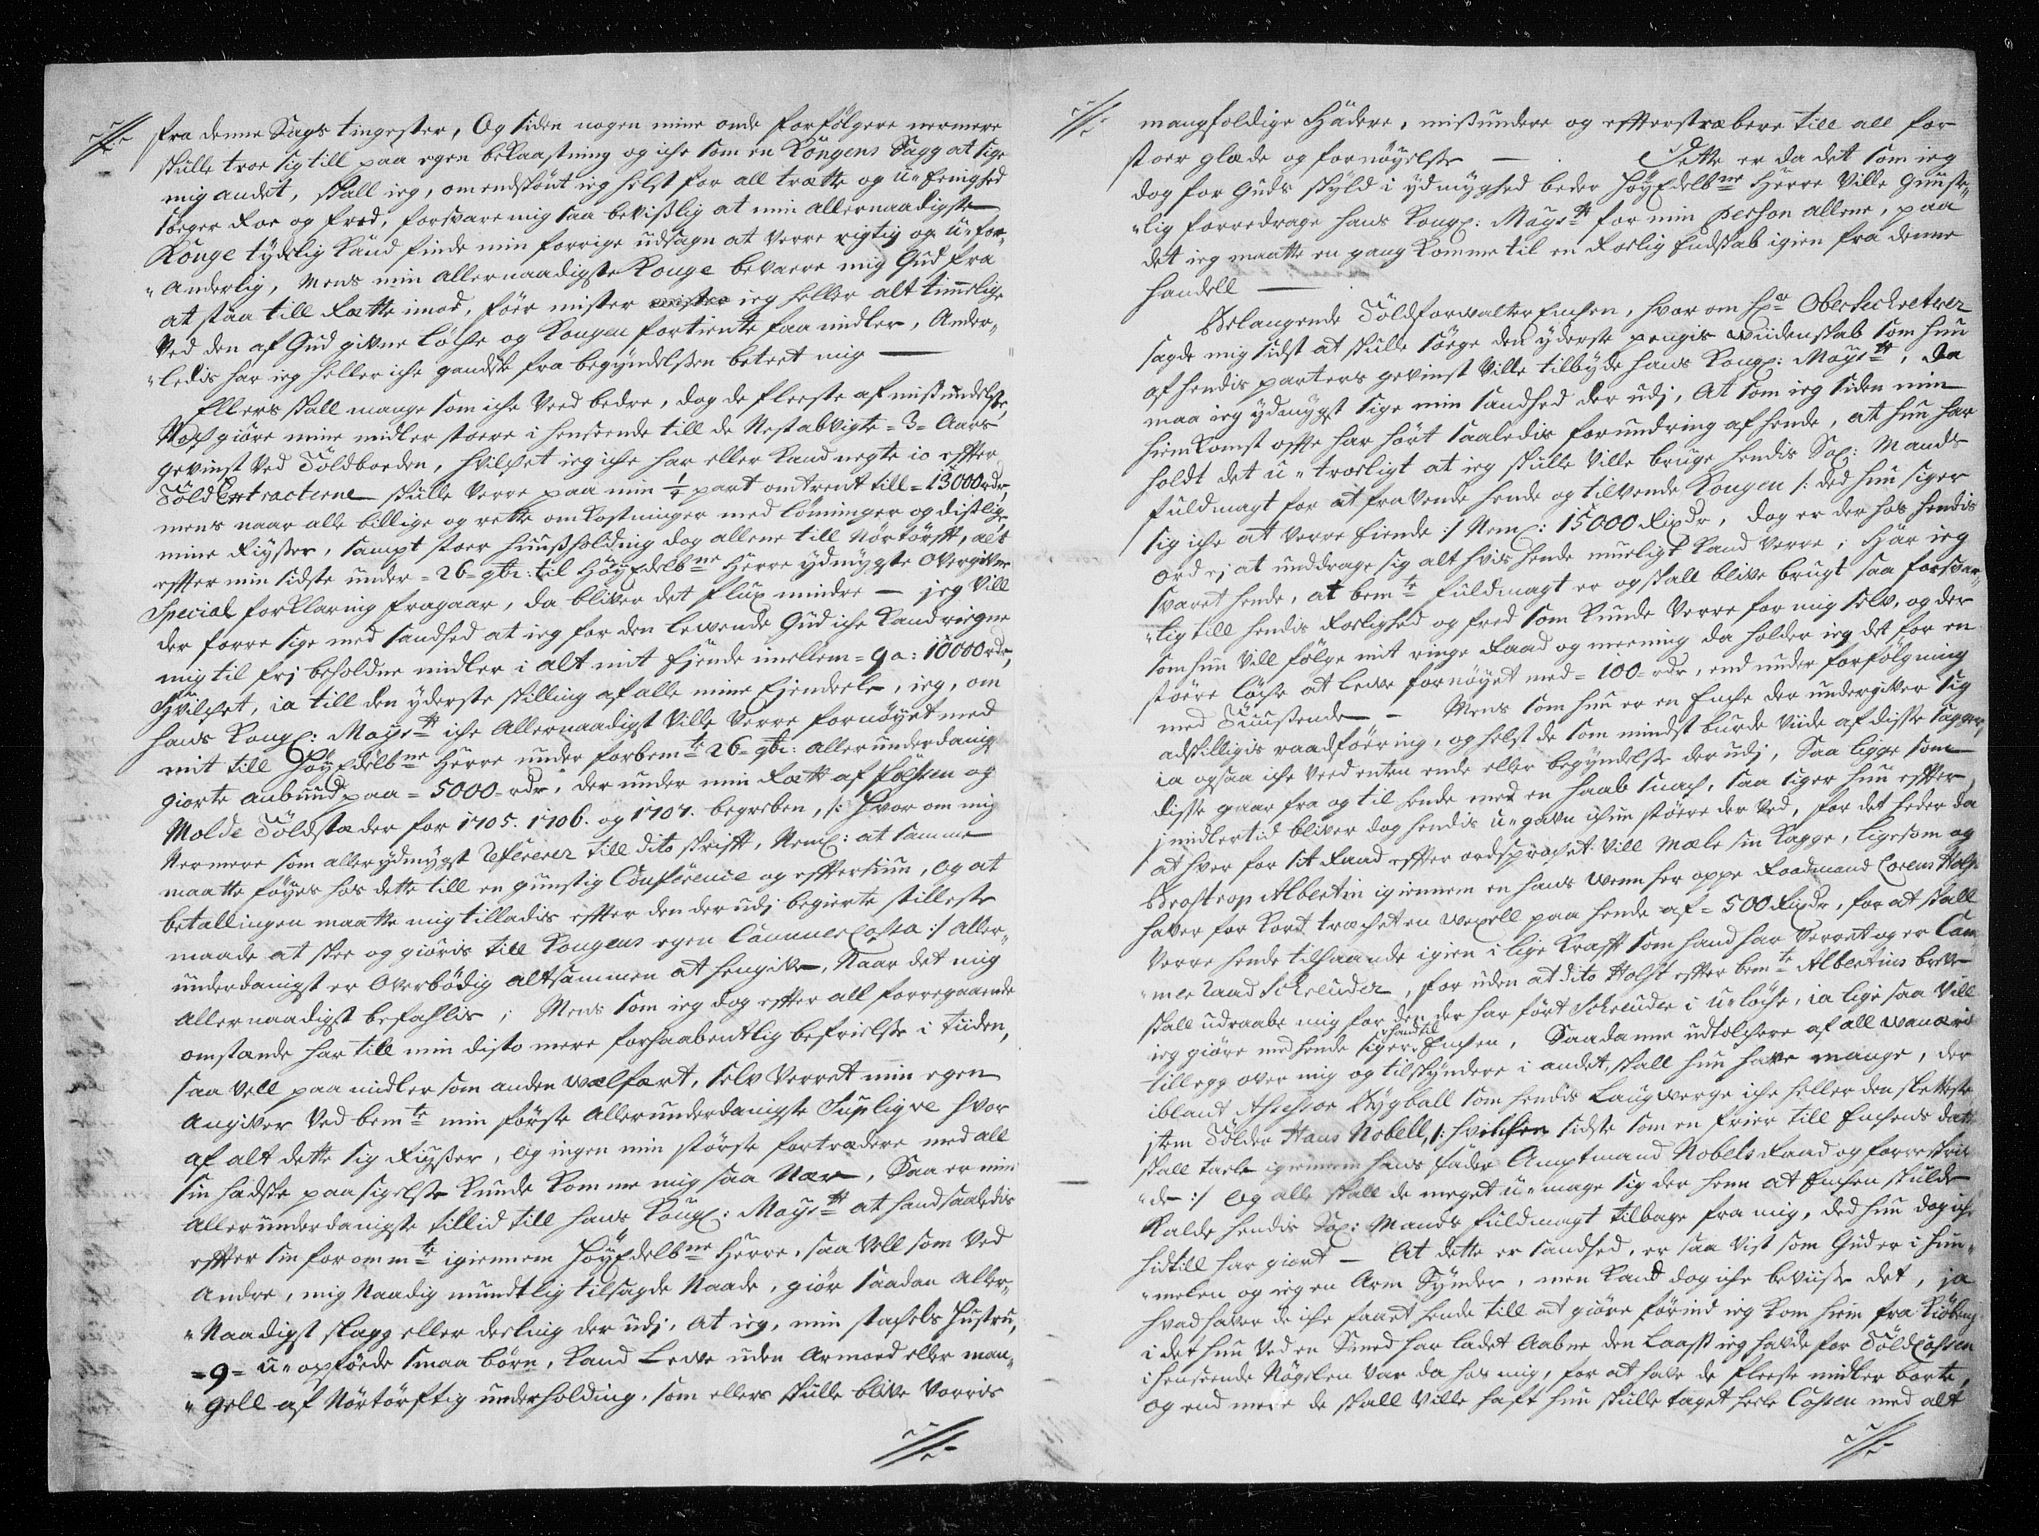 fra denne Sags tingester, Og siden nogen mine onde forfölgere nermere
skulle troe sig till paa egen bekaastning og iche som en Kongens Sagg at sige
mig andet, skall ieg, omendskönt ieg helst for all trætte og u-Eenighed
söger Roe og fred, forsvare mig saa beviislig at min allernaadigste
Konge tÿdelig kand finde min forrige udsagn at verre rigtig og u-for-
"anderlig, Mens min allernaadigste Konge bevarre mig Gud fra
at staa till Rætte imod, föer mister ieg heller alt timelige
Ved den af Gud givne lÖche og Kongen fortiente faa midler, Ander-
"ledis har ieg heller iche gandske fra begyndelsen beteet mig —
Ellers skall mange som iche Veed bedre, dog de fleeste af misundelse,
giöre mine midler stoere i henseende till de Nestafvigte = 3 = Aars
gevinst Ved Töldboeden, hvilchet ieg iche har eller kand negte io effter
Töld Extracterne skulle verre paa min 1/4 part omtrent till = 13000 rdr,
mens naar alle billige og rette omkostninger med lönninger og dislige
mine Reyser, sampt stoer Huusholding dog allene till Nörtörfft, alt
effter min sidste under = 26 = 9br: til HöyEdelbne Herre ydmygste overgivne
Special forklaring fragaar, da bliver det flux mindre — jeg vill
der forre sige med sandhed at ieg for den levende Gud iche kand reigne
mig til frj beholdne midler i alt mit Ejende imellem = 9 a: 10000 rdr,
Hvilchet, ia till den yderste skilling af alle mine Ejendeele, ieg, om
hans Kongl: Mayst iche Allernaadigst Ville Verre fornöyet med
mit till HöyEdelbne Herre under forbemte 26 = 9br: allerunderdanigst
giorte anbuud paa = 5000 = rdr, der under min Rætt af sochsen og
Molde Töldstæder for 1705. 1706. og 1707. begreben, /: Hvor om mig
Nermere som aller ydmygst Refererer till dito skrifft, Neml: at samme
maatte föyes hos dette till en gunstig Conference og efftersiun, og at
betallingen maatte mig tilladis effter den der udj begierte stilleste
maade at skee og giöris till Kongens egen Cammer Cassa :/ aller-
underdanigst er overbödig altsammen at hengive, Naar det mig
Allernaadigst befahlis; Mens som ieg dog effter all forregaaende
omstande har till min disto mere forhaabentlig befrielse i tiiden,
saa vell paa midler som anden wælfært, selv Verret min egen
Angiver Ved bemte min förste Allerunderdanigste Supliqve hvor
af alt dette sig Reyser, og ingen min störste fortrædere med all
sin hadske paasigelse kunde komme mig saa Nær, Saa er min
allerunderdanigste tillid till hans Kongl: Mayst at hand saaledis
effter sin forommte igiennem HöyEdelbne Herre, saa Vell som Ved
andre, mig Naadig mundtlig tilsagde Naade, giör saadan aller-
"Naadigst slagg eller deeling der udj, At ieg, min stachels Hustru,
= 9 = u-opföede smaa börn, kand Leeve uden Armoed eller man-
"gell af Nörtörftig underholding, som ellers skulle blive Vorris
mangfoldige Hadere, misundere og effterstræbere till all for
stoer glæde og fornöyelse — Dette er da det som ieg
dog for Guds skyld i ydmyghed beder HöyEdelbne Herre Ville gunst-
"lig forredrage hans Kongl: Mayst for min Person allene, paa
det ieg maatte en gang komme til en Roelig Endskab igien fra denne
handell —
Belangende Töldforvalter Enchen, hvor om Hr Obersecretver
sagde mig sidst at skulle söge den yderste pengis wiidenskab som hun
af hendis parters gevinst Ville tilbyde hans Kongl: Mayst, da
maa ieg ydmygst sige min sandhed der udj, At som ieg siden min
hiemkomst offte har hört saaledis forundring af hende, at hun har
holdt det u-troeligt at ieg skulle Ville bruge hendis Sal: Mands
fuldmagt for at fravende hende og tilvende Kongen /: ded hun siger
sig iche at verre Eiende :/ Neml: 15000 Rixdr, dog er der hos hendis
ord ej at unddrage sig alt hvis hende mueligt kand verre; Har ieg
svaret hende, at bemte fuldmagt er og skall blive brugt saa forsvar-
"lig till hendis Roelighed og fred som kunde Verre for mig selv, og der
som hun Vill fölge mit ringe Raad og meening da holder ieg det for en
stöere löche at leeve fornöyet med = 100 = rdr, end under forfölgning
med Tuusende — Mens som hun er en Enche der undergiver sig
adskilligis raadföering, og helst de som mindst burde Viide af disse sagger,
ia ogsaa iche Veed enten ende eller begyndelse der udj, Saa ligge som
disse gaar fra og til hende med en haab snach, saa siger hun effter,
jmidlertid bliver dog hendis u-gavn ichun stöere der Ved, for det heder da
at hver for sit Raad effter ordsproget Vill Mæle sin Kagge, ligesom og
Brostrop Albertin igiennem en hans wenn her oppe Raadmand Lorens Holst
haver for kort trachet en Wexell paa hende af = 500 Rixdr, for at skall
Verre hende tilhaande igien i lige krafft som hand har Verret og er Cam-
"mer Raad Schreuder, for uden at dito Holst effter bemte Albertins breve
skall udraabe mig for den der har fört Schreuder i u-löche, ia lige saa Vill
ieg giöre med hende siger hand til Enchen, Saadanne udtolchere af all wanære
till egg over mig og tilskyndere i andet, skall hun have mange, der
iblant Assessor Dygball som hendis Laugwerge iche heller den sletteste
jtem Tölder Hans Nobell, /: hvilchen sidste som en frier till Enchens datter
skall taele igiennem hans fader Amptmand Nobels Raad og forreskriv-
"de :/ og alle skall de meget u-mage sig der henn at Enchen skulde
kalde hendis Sal: Mands fuldmagt tilbage fra mig, ded hun dog iche
hidtill har giort — At dette er sandhed, er saa Vist som Gud er i Him-
"melen og ieg en Arm Synder, men kand dog iche beviise det, ja
hvad haver de iche faaet hende till at giöre förind ieg kom hiem fra Kiöbenh
i det hun ved en Smed har ladet Aabne den Laass ieg havde for Töld Cassen
i henseende Nögelen var da hos mig, for at have de fleeste midler borte,
og end mere de skall ville hafft hun skulle taget heele Cassen med alt